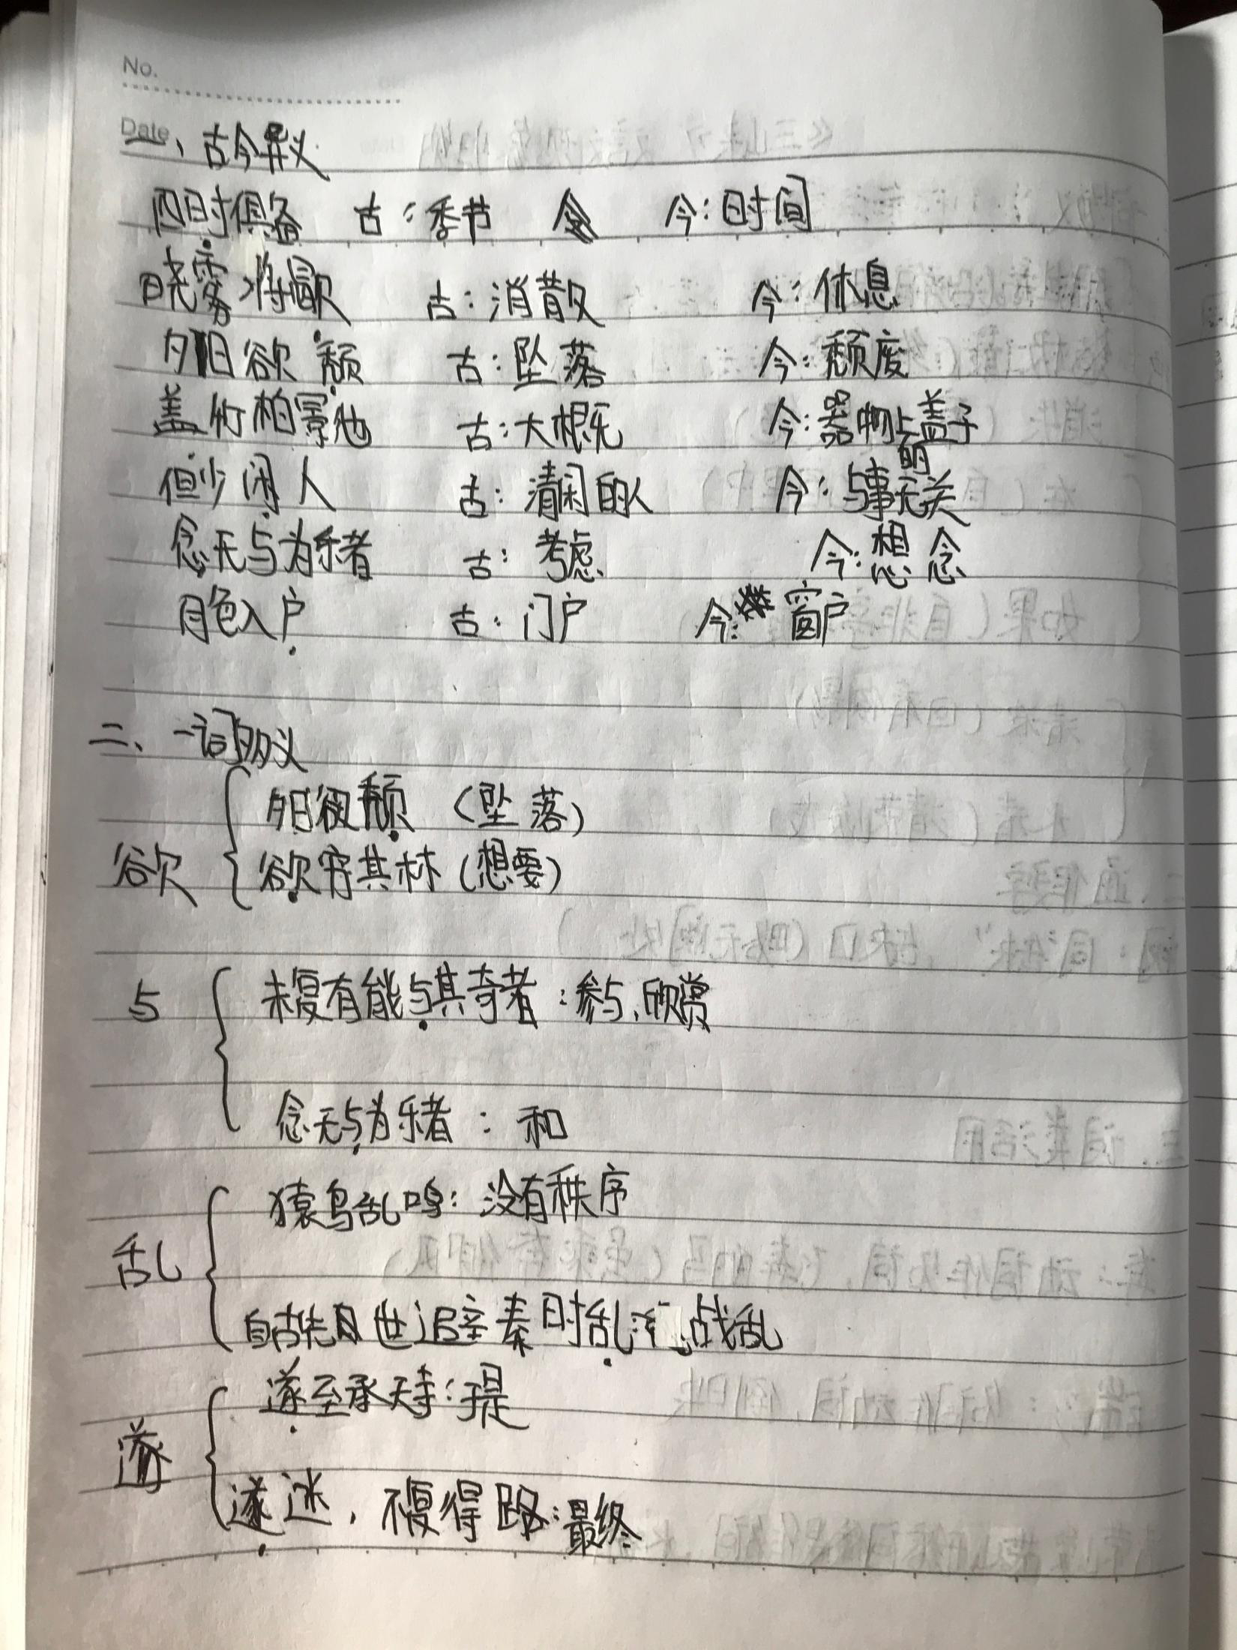 No.
Date
一、古今异义
四时俱备 古:季节 今:时间
晓雾将歇 古:消散 今:休息
夕日欲颓 古:坠落 今:颓废
盖竹柏影也 古:大概 今:器物上的盖子
但少闲人 古:清闲的人 今:与事无关
念无与为乐者 古:考虑 今:想念
月色入户 古:门户 今:窗户
二、一词多义
欲
夕日欲颓(坠落)
欲穷其林(想要)
与
未复有能与其奇者:参与、欣赏
念无与为乐者:和
乱
猿鸟乱鸣:没有秩序
自古先世避秦时乱 战乱
遂
遂至承天寺:于是
遂迷,不复得路:最终